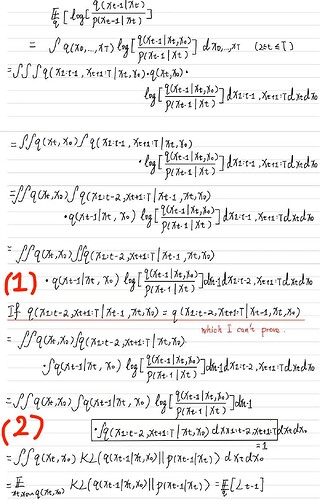 𝔼_q [ log q(x_{t-1}|x_t,x_0) / p(x_{t-1}|x_t) ]
= ∫ q(x_0,...,x_T) log [ q(x_{t-1}|x_t,x_0) / p(x_{t-1}|x_t) ] dx_0,...,x_T (2≤t≤T)
= ∫∫∫ q(x_{1:t-1}, x_{t+1:T}|x_t,x_0) · q(x_t,x_0) ·
log [ q(x_{t-1}|x_t,x_0) / p(x_{t-1}|x_t) ] dx_{1:t-1}, x_{t+1:T} dx_t dx_0
= ∫∫ q(x_t, x_0) ∫ q(x_{1:t-1}, x_{t+1:T}|x_t,x_0)
· log [ q(x_{t-1}|x_t,x_0) / p(x_{t-1}|x_t) ] dx_{1:t-1}, x_{t+1:T} dx_t dx_0
= ∫∫ q(x_t,x_0) ∫ q(x_{1:t-2}, x_{t+1:T}|x_{t-1}, x_t, x_0)
· q(x_{t-1}|x_t, x_0) log [ q(x_{t-1}|x_t,x_0) / p(x_{t-1}|x_t) ] dx_{1:t-1}, x_{t+1:T} dx_t dx_0
= ∫∫ q(x_t,x_0) ∫∫ q(x_{1:t-2}, x_{t+1:T}|x_{t-1}, x_t, x_0)
(1) · q(x_{t-1}|x_t, x_0) log [ q(x_{t-1}|x_t,x_0) / p(x_{t-1}|x_t) ] dx_{t-1} dx_{1:t-2}, x_{t+1:T} dx_t dx_0
If q(x_{1:t-2}, x_{t+1:T}|x_{t-1}, x_t, x_0) = q(x_{1:t-2}, x_{t+1:T}|x_t, x_0)
which I can't prove.
= ∫∫ q(x_t, x_0) ∫ q(x_{1:t-2}, x_{t+1:T}|x_t, x_0)
· ∫ q(x_{t-1}|x_t, x_0) log [ q(x_{t-1}|x_t,x_0) / p(x_{t-1}|x_t) ] dx_{t-1} dx_{1:t-2}, x_{t+1:T} dx_t dx_0
= ∫∫ q(x_t, x_0) ∫ q(x_{t-1}|x_t, x_0) log [ q(x_{t-1}|x_t,x_0) / p(x_{t-1}|x_t) ] dx_{t-1}
(2) · ∫ q(x_{1:t-2}, x_{t+1:T}|x_t, x_0) dx_{1:t-2}, x_{t+1:T} dx_t dx_0
=1
= ∫∫ q(x_t, x_0) KL( q(x_{t-1}|x_t, x_0) || p(x_{t-1}|x_t) ) dx_t dx_0
= 𝔼_{x_t,x_0~q(x_t,x_0)} KL( q(x_{t-1}|x_t, x_0) || p(x_{t-1}|x_t) ) = 𝔼_q [L_{t-1}]